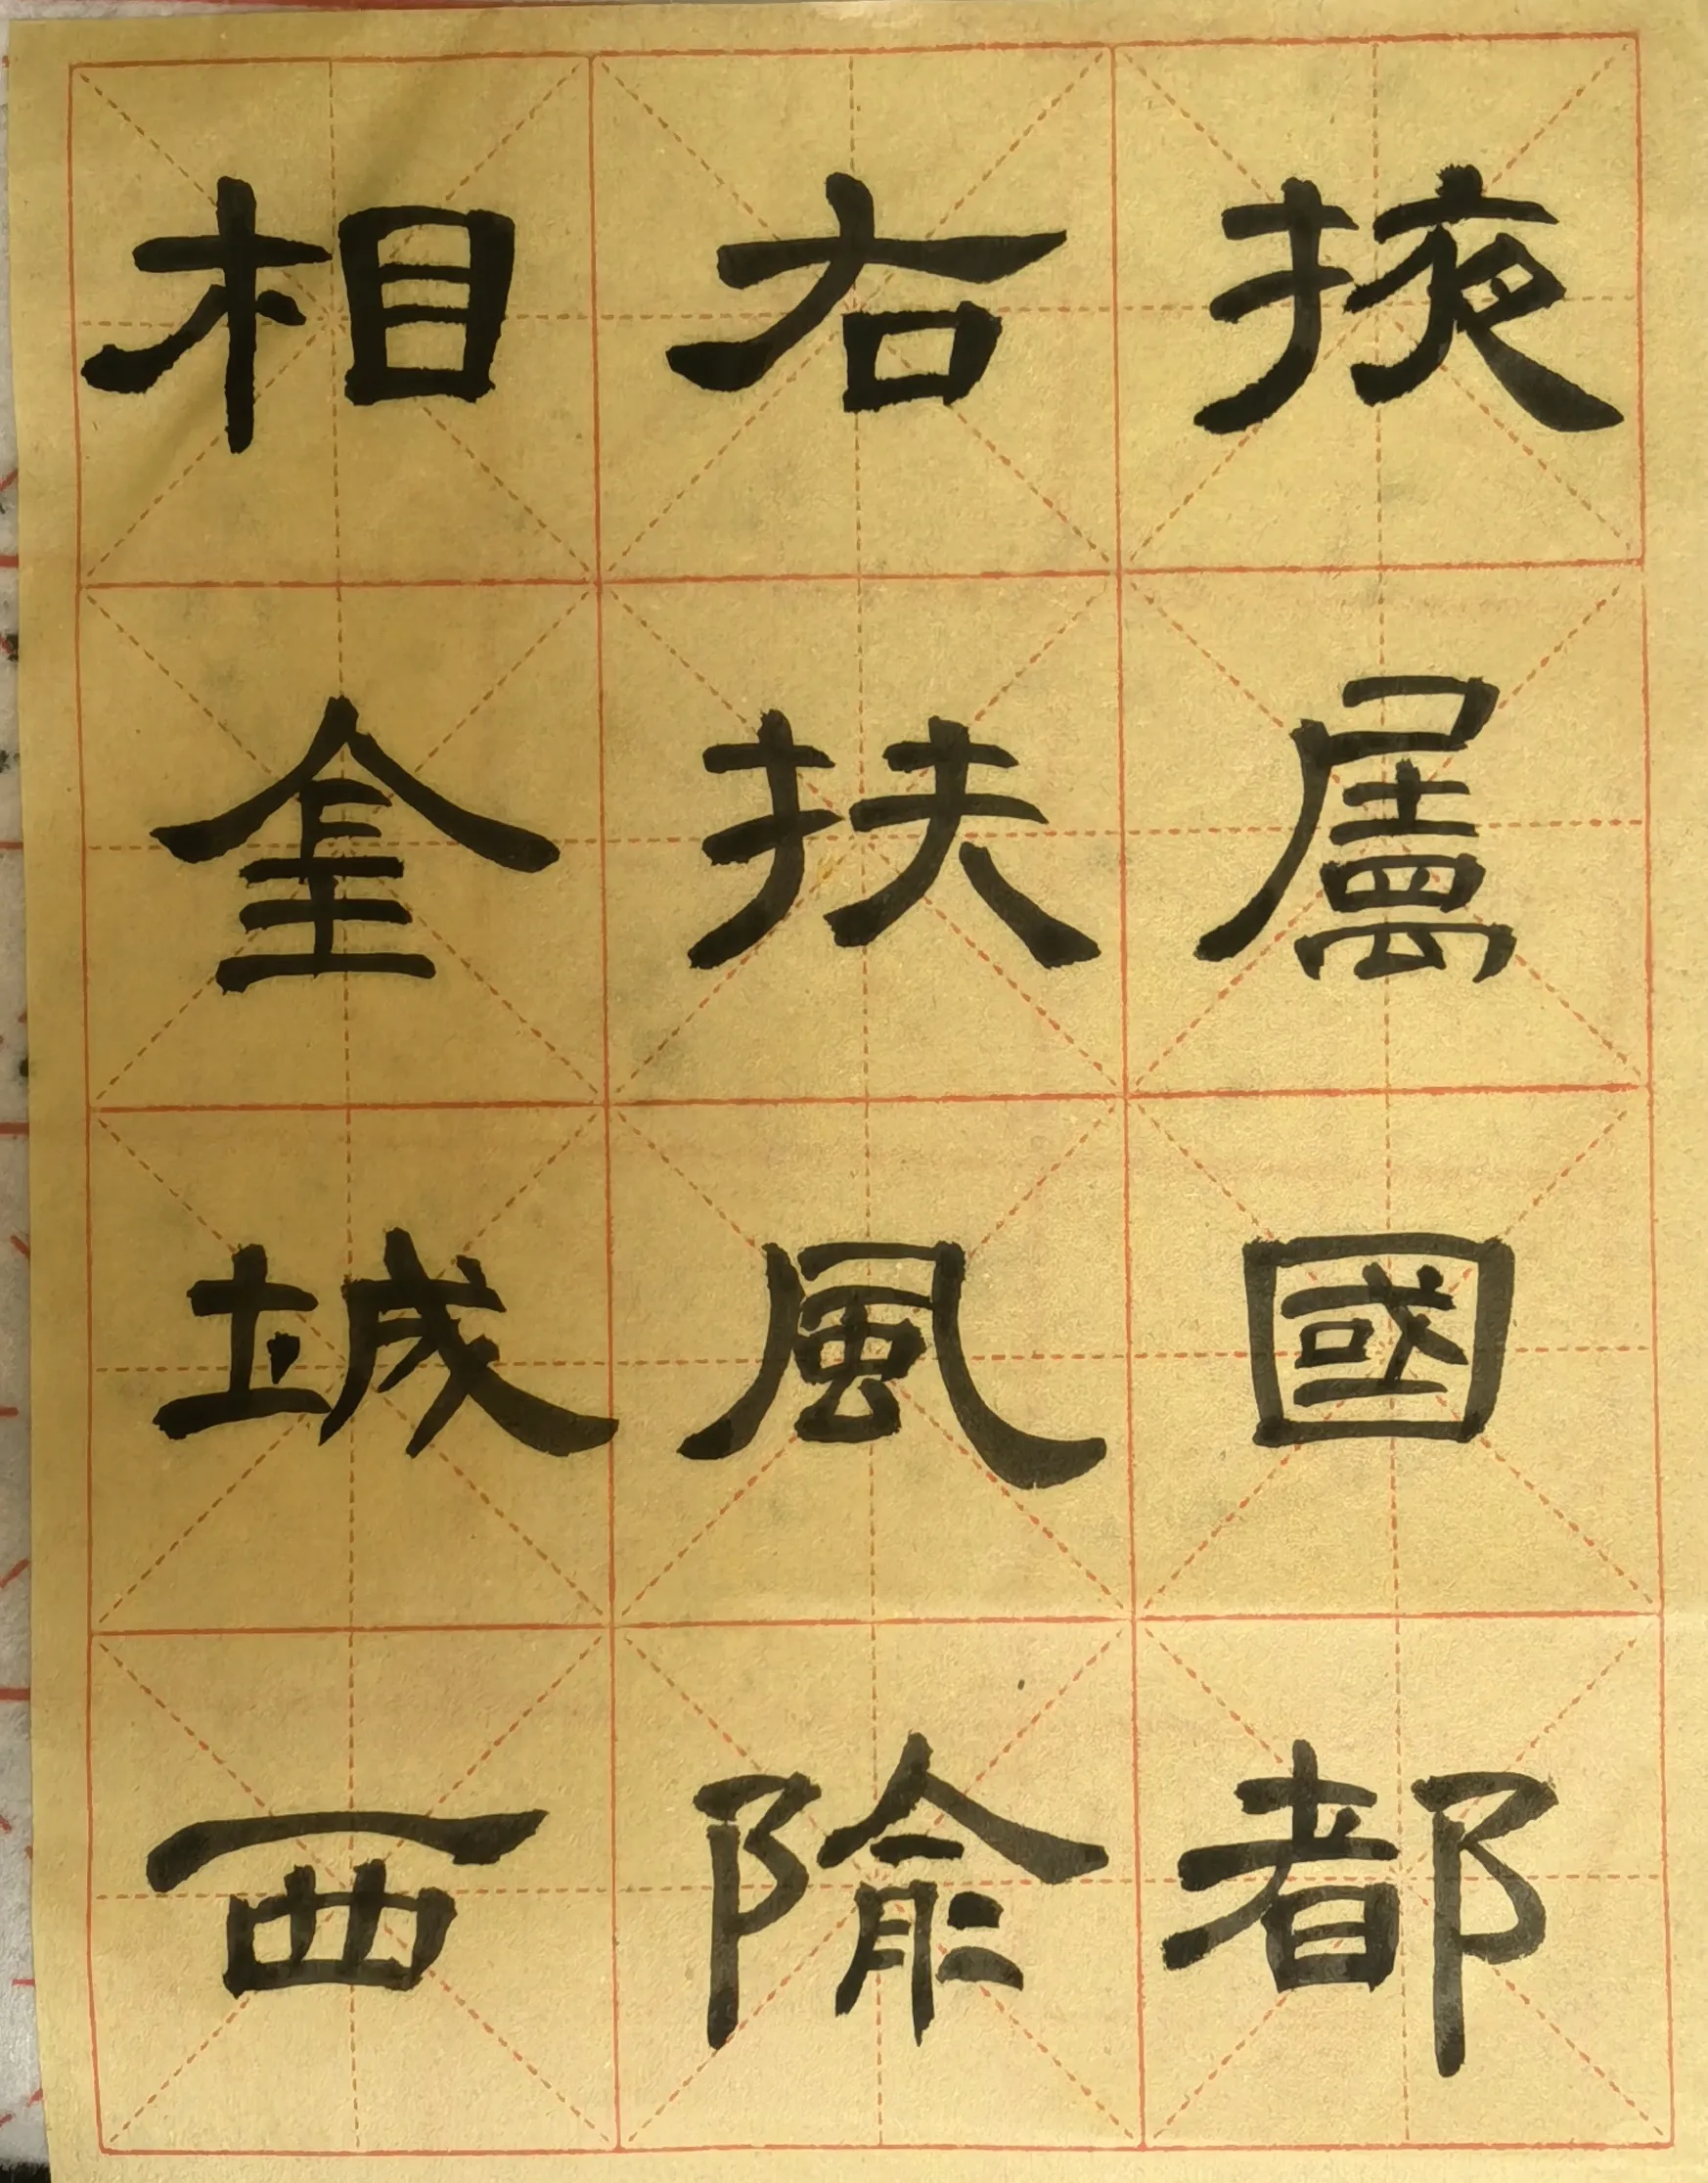 掖屬國都
右扶風隃
相金城西